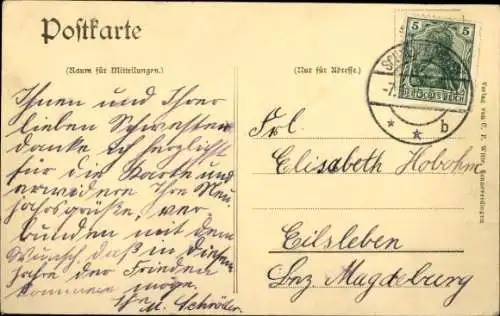 Postkarte
(Raum für Mitteilungen.)
(Nur für Adresse.)
Ihnen und Ihrer
lieben Schwester
danke ich herzlichst
für die Karte und
erwidere Ihre Neu
jahrsgrüße, ver
bunden mit dem
Wunsch daß in diesem
Jahre der Frieden
kommen möge.
M. Schröder.
5 5
DEUTSCHES REICH
-7.
* * b
Frl.
Elisabeth Hobohm
Eilsleben
Bez. Magdeburg
Verlag von C. F.